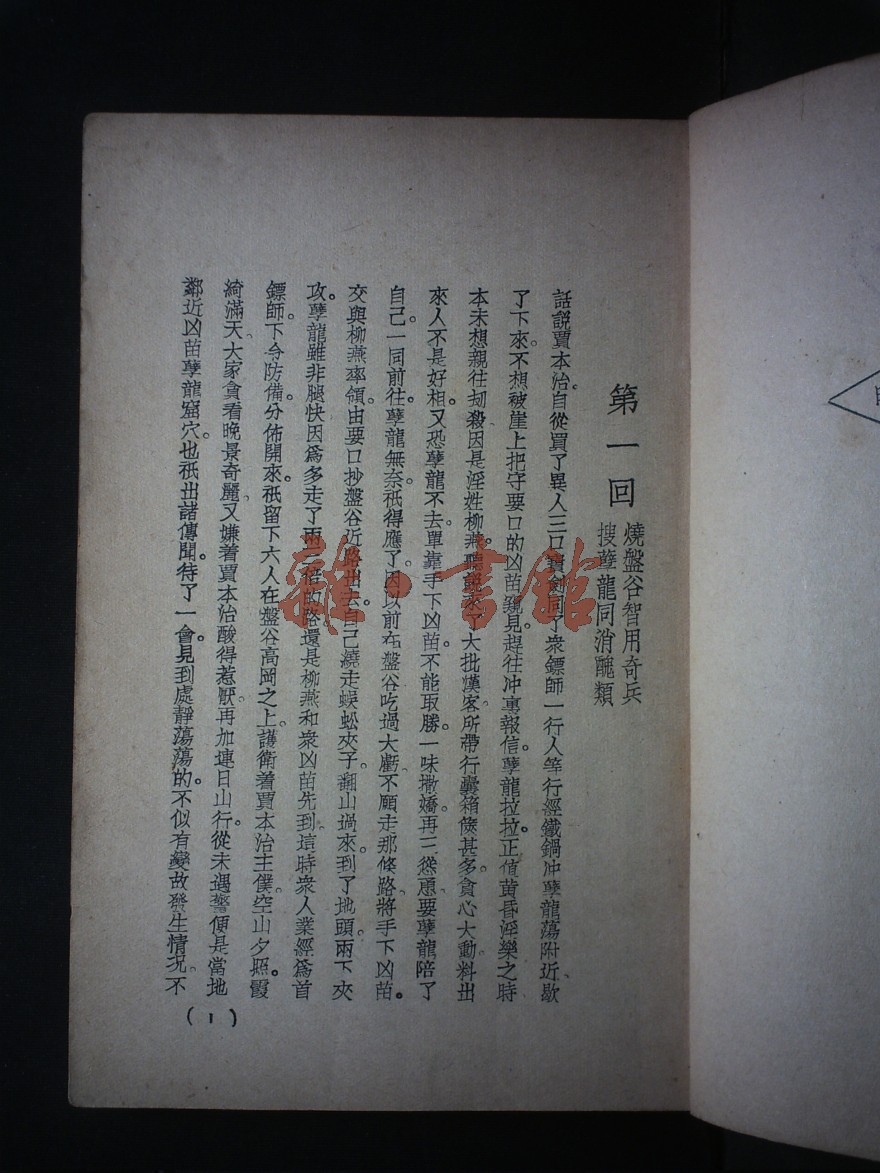 第一回
燒盤谷智用奇兵
搜孽龍同消醜類
話說賈本治自從買了異人三口寶劍同了衆鏢師一行人等行經鐵鍋冲孽龍蕩附近、歇
了下來。不想被崖上把守要口的凶苗窺見。趕往冲裏報信。孽龍拉拉正值黃昏淫樂之時
本未想親往刼殺。因是淫姓柳燕聽說來了大批漢客。所帶行囊箱儎甚多。貪心大動。料出
來人不是好相。又恐孽龍不去。單靠手下凶苗不能取勝。一味撒嬌。再三慫恿。要孽龍陪了
自己一同前往。孽龍無奈。祇得應了。因以前在盤谷吃過大虧。不願走那條路。將手下凶苗。
交與柳燕率領。由要口抄盤谷近路出去。自己繞走蜈蚣夾子。翻山過來。到了地頭。兩下夾
攻。孽龍雖非腿快。因爲多走了兩三倍的路。還是柳燕和衆凶苗先到。這時衆人業經爲首
鏢師。下令防備。分佈開來。祇留下六人在盤谷高岡之上。護衛着賈本治主僕。空山夕照。霞
綺滿天。大家貪看晚景奇麗。又嫌着賈本治酸得惹厭。再加連日山行。從未遇警。便是當地
鄰近凶苗孽龍窟穴。也祇出諸傳聞。待了一會。見到處靜蕩蕩的。不似有變故發生情况。不
(1)
雜·書館